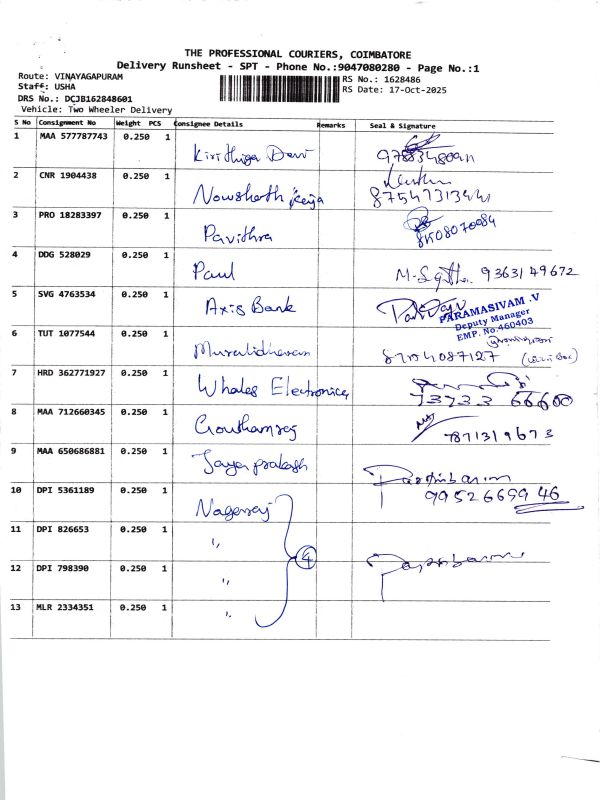 THE PROFESSIONAL COURIERS, COIMBATORE
Delivery Runsheet - SPT - Phone No.:9047080280 - Page No.:1
Route: VINAYAGAPURAM
RS No.: 1628486
Staff: USHA
RS Date: 17-Oct-2025
DRS No.: DCJB162848601
Vehicle: Two Wheeler Delivery
S No Consignment No Weight PCS Consignee Details Remarks Seal & Signature
1 MAA 577787743 0.250 1
Kirithiga Devi
2 CNR 1904438 0.250 1
Nowsherth
3 PRO 18283397 0.250 1
Pavithra
4 DDG 528029 0.250 1
Paul 9363149672
5 SVG 4763534 0.250 1
Axis Bank
PARAMASIVAM .V
Deputy Manager
EMP. No.460403
6 TUT 1077544 0.250 1
Muralidharan
7 HRD 362771927 0.250 1
Whales Electronics 73733 66600
8 MAA 712660345 0.250 1
Gouthamraj 7871319673
9 MAA 650686881 0.250 1
Jaya prakash
10 DPI 5361189 0.250 1
Nagaraj 9952666946
11 DPI 826653 0.250 1
"
4
12 DPI 798390 0.250 1
"
13 MLR 2334351 0.250 1
"